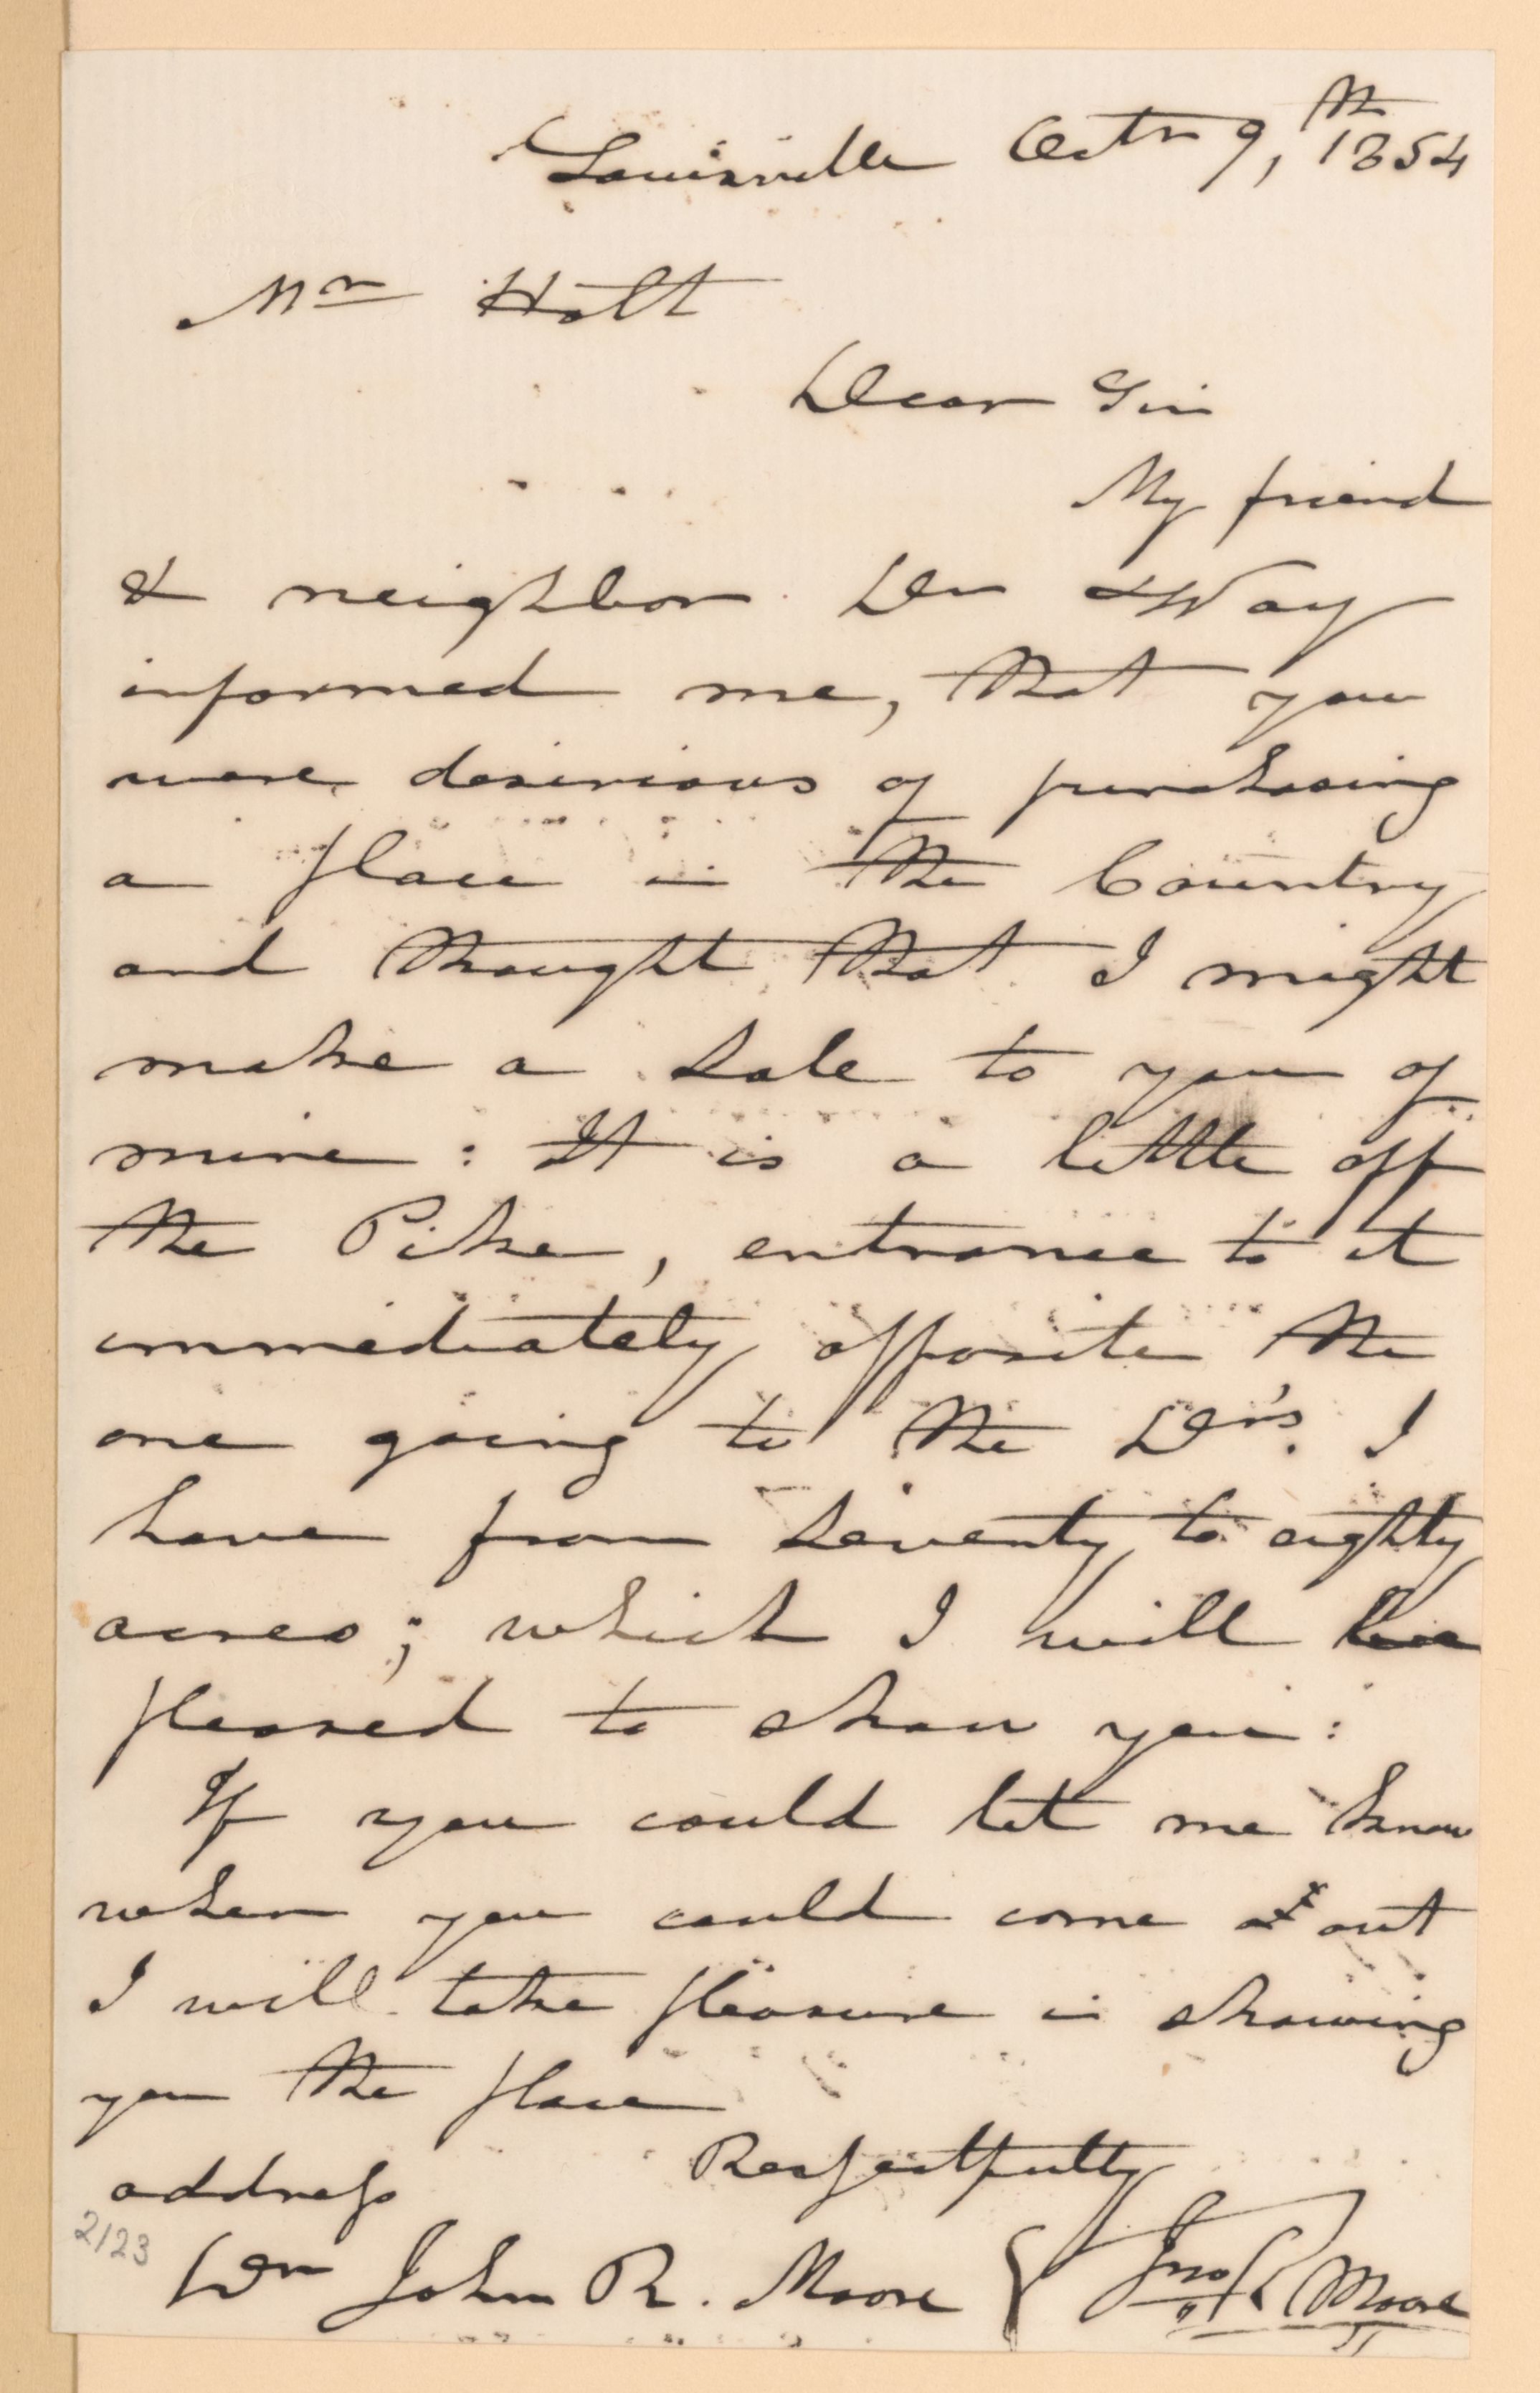 Louisville Octr 9,th 1854
Mr Holt
Dear Sir
My friend
& neighbor Dr Way
informed me, that you
were desirious of purchasing
a place in the Country
and thought that I might
make a sale to you of
mine : It is a little off
the Pike, entrance to it
immediately opposite the
one going to the Dr's. I
have from seventy to eighty
acres; which I will be
pleased to show you:
If you could let me know
when you could come out
I will take pleasure in showing
you the place
Respectfully
address
Dr John R. Moore { Jno R Moore
2123